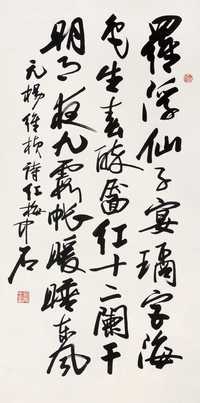 羅浮仙子宴璚宫海
色生春醉面紅十二闌干
明月夜九霞帐暖睡東風
元楊維楨詩紅梅中石